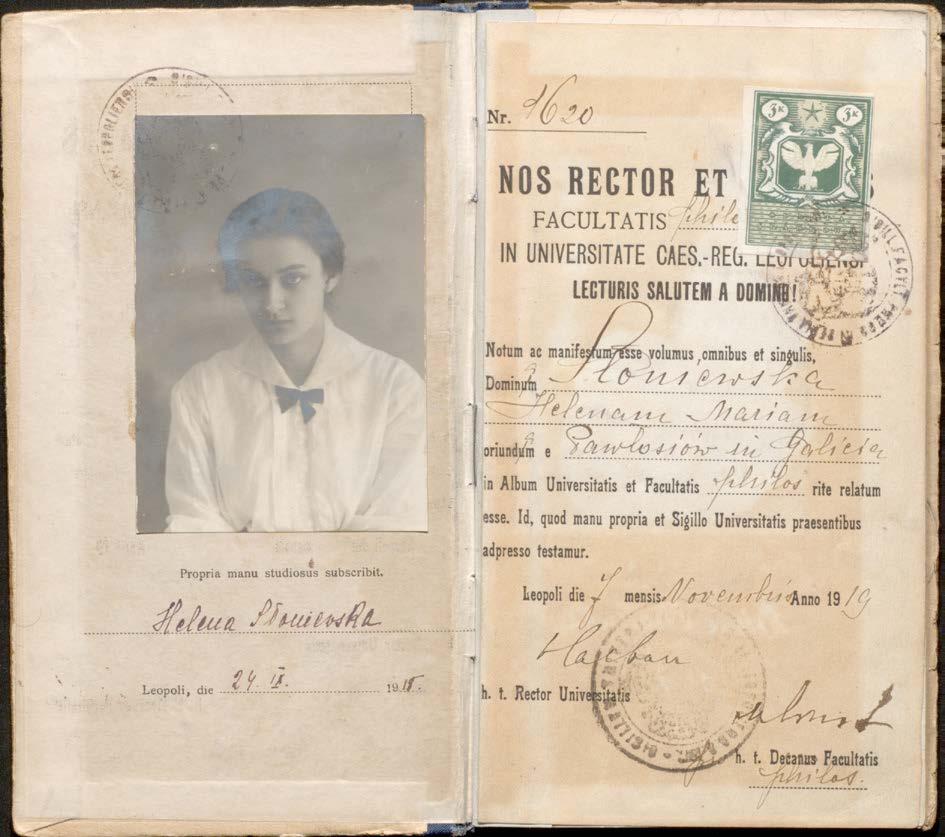 Propria manu studiosus subscribit.
Helena Słoniewska
Leopoli, die 24. IX. 1915.
Nr. 1620
3K 3K
NOS RECTOR ET
FACULTATIS philo
IN UNIVERSITATE CAES.-REG. LEOPOLIENSI
LECTURIS SALUTEM A DOMINO!
Notum ac manifestum esse volumus omnibus et singulis,
Dominum Słoniewska
Helenam Mariam
oriundum e Pawłosiów in Galicia
in Album Universitatis et Facultatis philos rite relatum
esse. Id, quod manu propria et Sigillo Universitatis praesentibus
adpresso testamur.
Leopoli die 7 mensis Novembris Anno 1919
h. t. Rector Universitatis
h. t. Decanus Facultatis
philos.